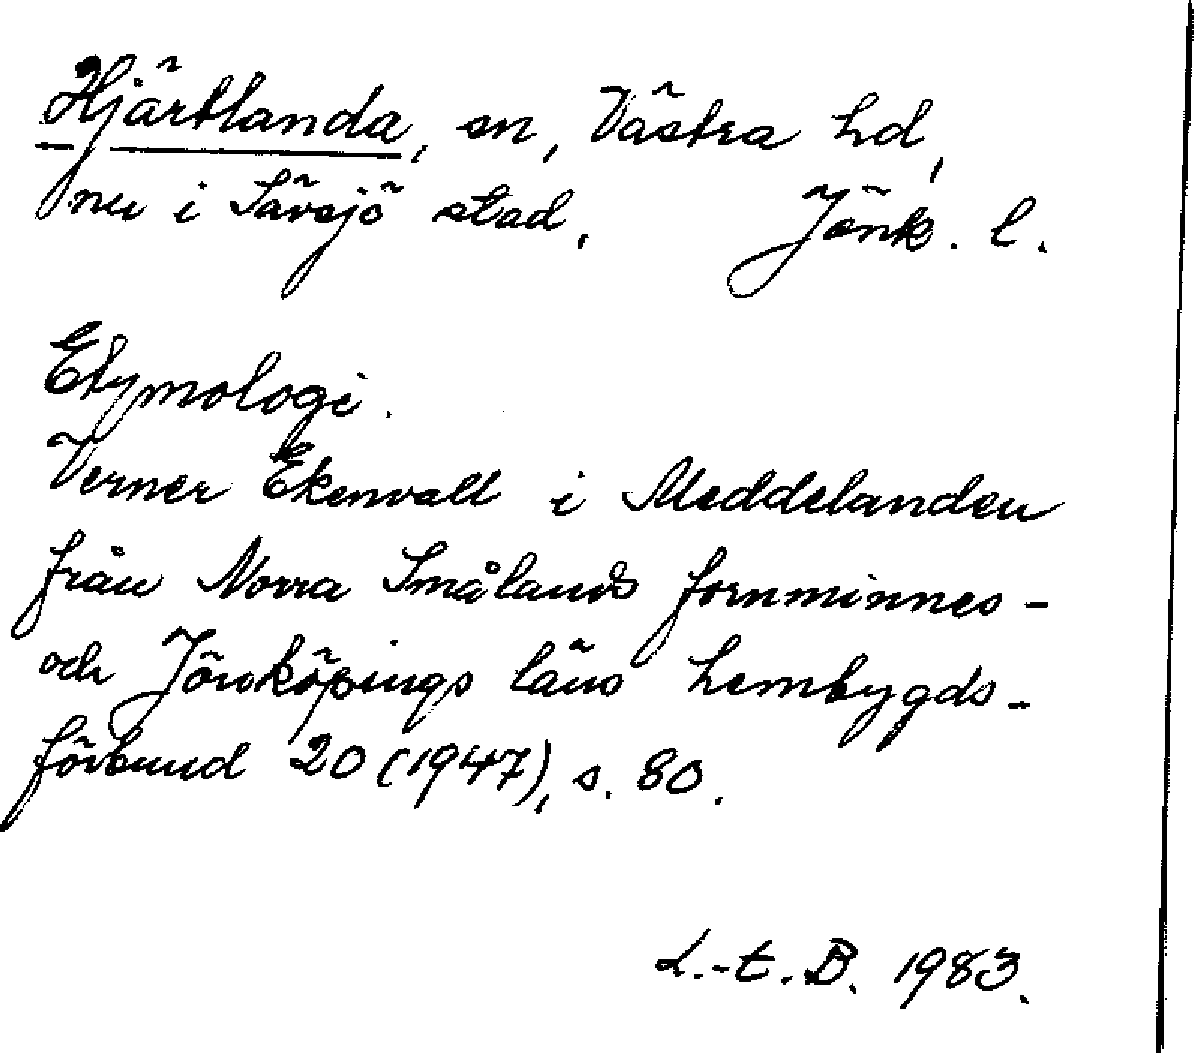 Hjärtlanda, sn, Västra hd,
nu i Sävsjö stad, Jönk. l.
Etymologi.
Verner Ekenvall i Meddelanden
från Norra Smålands fornminnes-
och Jönköpings läns hembygds-
förbund 20 (1947), s. 80.
L.-E. B. 1983.